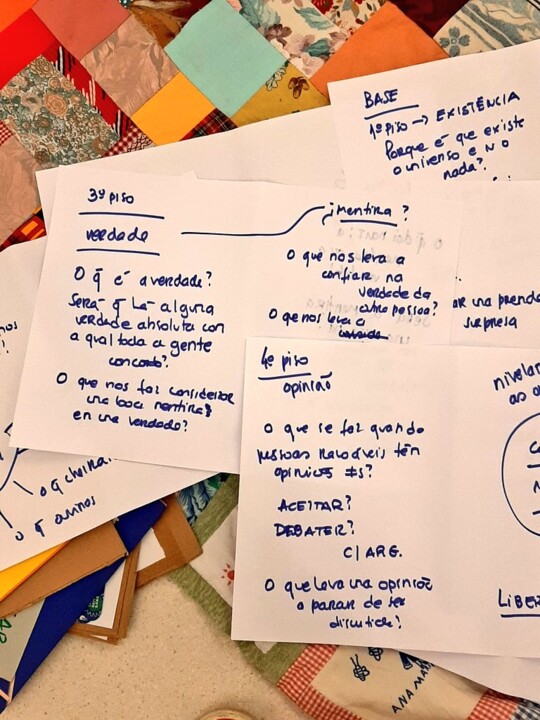 BASE
1º PISO → EXISTÊNCIA
Porque é que existe
o universo e NO
nada?
3º PISO
verdade
O q̄ é a verdade?
Será q̄ há alguma
verdade absoluta com
a qual toda a gente
concorde?
O que nos faz considerar
uma boa mentira
em uma verdade?
¿Mentira?
O que nos leva a
confiar na
verdade da
outra pessoa?
O que nos leva a
AR uma prenda
surpresa
4º PISO
opinião
O que se faz quando
pessoas razoáveis têm
opiniões ≠s?
ACEITAR?
DEBATER?
C/ ARG.
O que leva uma opinião
a parar de ser
discutida?
nivelar
as o
LIBER
O q̄ cheira
O q̄ ouvimos
ANA MA